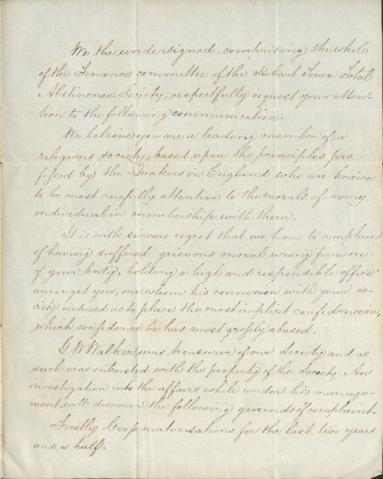 We the undersigned, comprising the whole
of the Finance committee of the Hobart Town Total
Abstinence Society, respectfully request your atten-
tion to the following communication.
We believe you are a leading member of a
religious society, based upon the principles pro
fessed by the Quakers in England who are known
to be most carefully attentive to the morals of every
individual in membership with them.
It is with sincere regret that we have to complain
of having suffered grievous moral wrong from one
of your body, holding a high and responsible office
amongst you, one whom his connexion with your so-
ciety induced us to place the most implicit confidence in,
which confidence he has most grossly abused.
G W Walker was treasurer of our Society and as
such was entrusted with the property of the Society. An
investigation into the affairs while under his manage-
ment will discover the following grounds of complaint.
Firstly Gross malversations for the last two years
and a half.